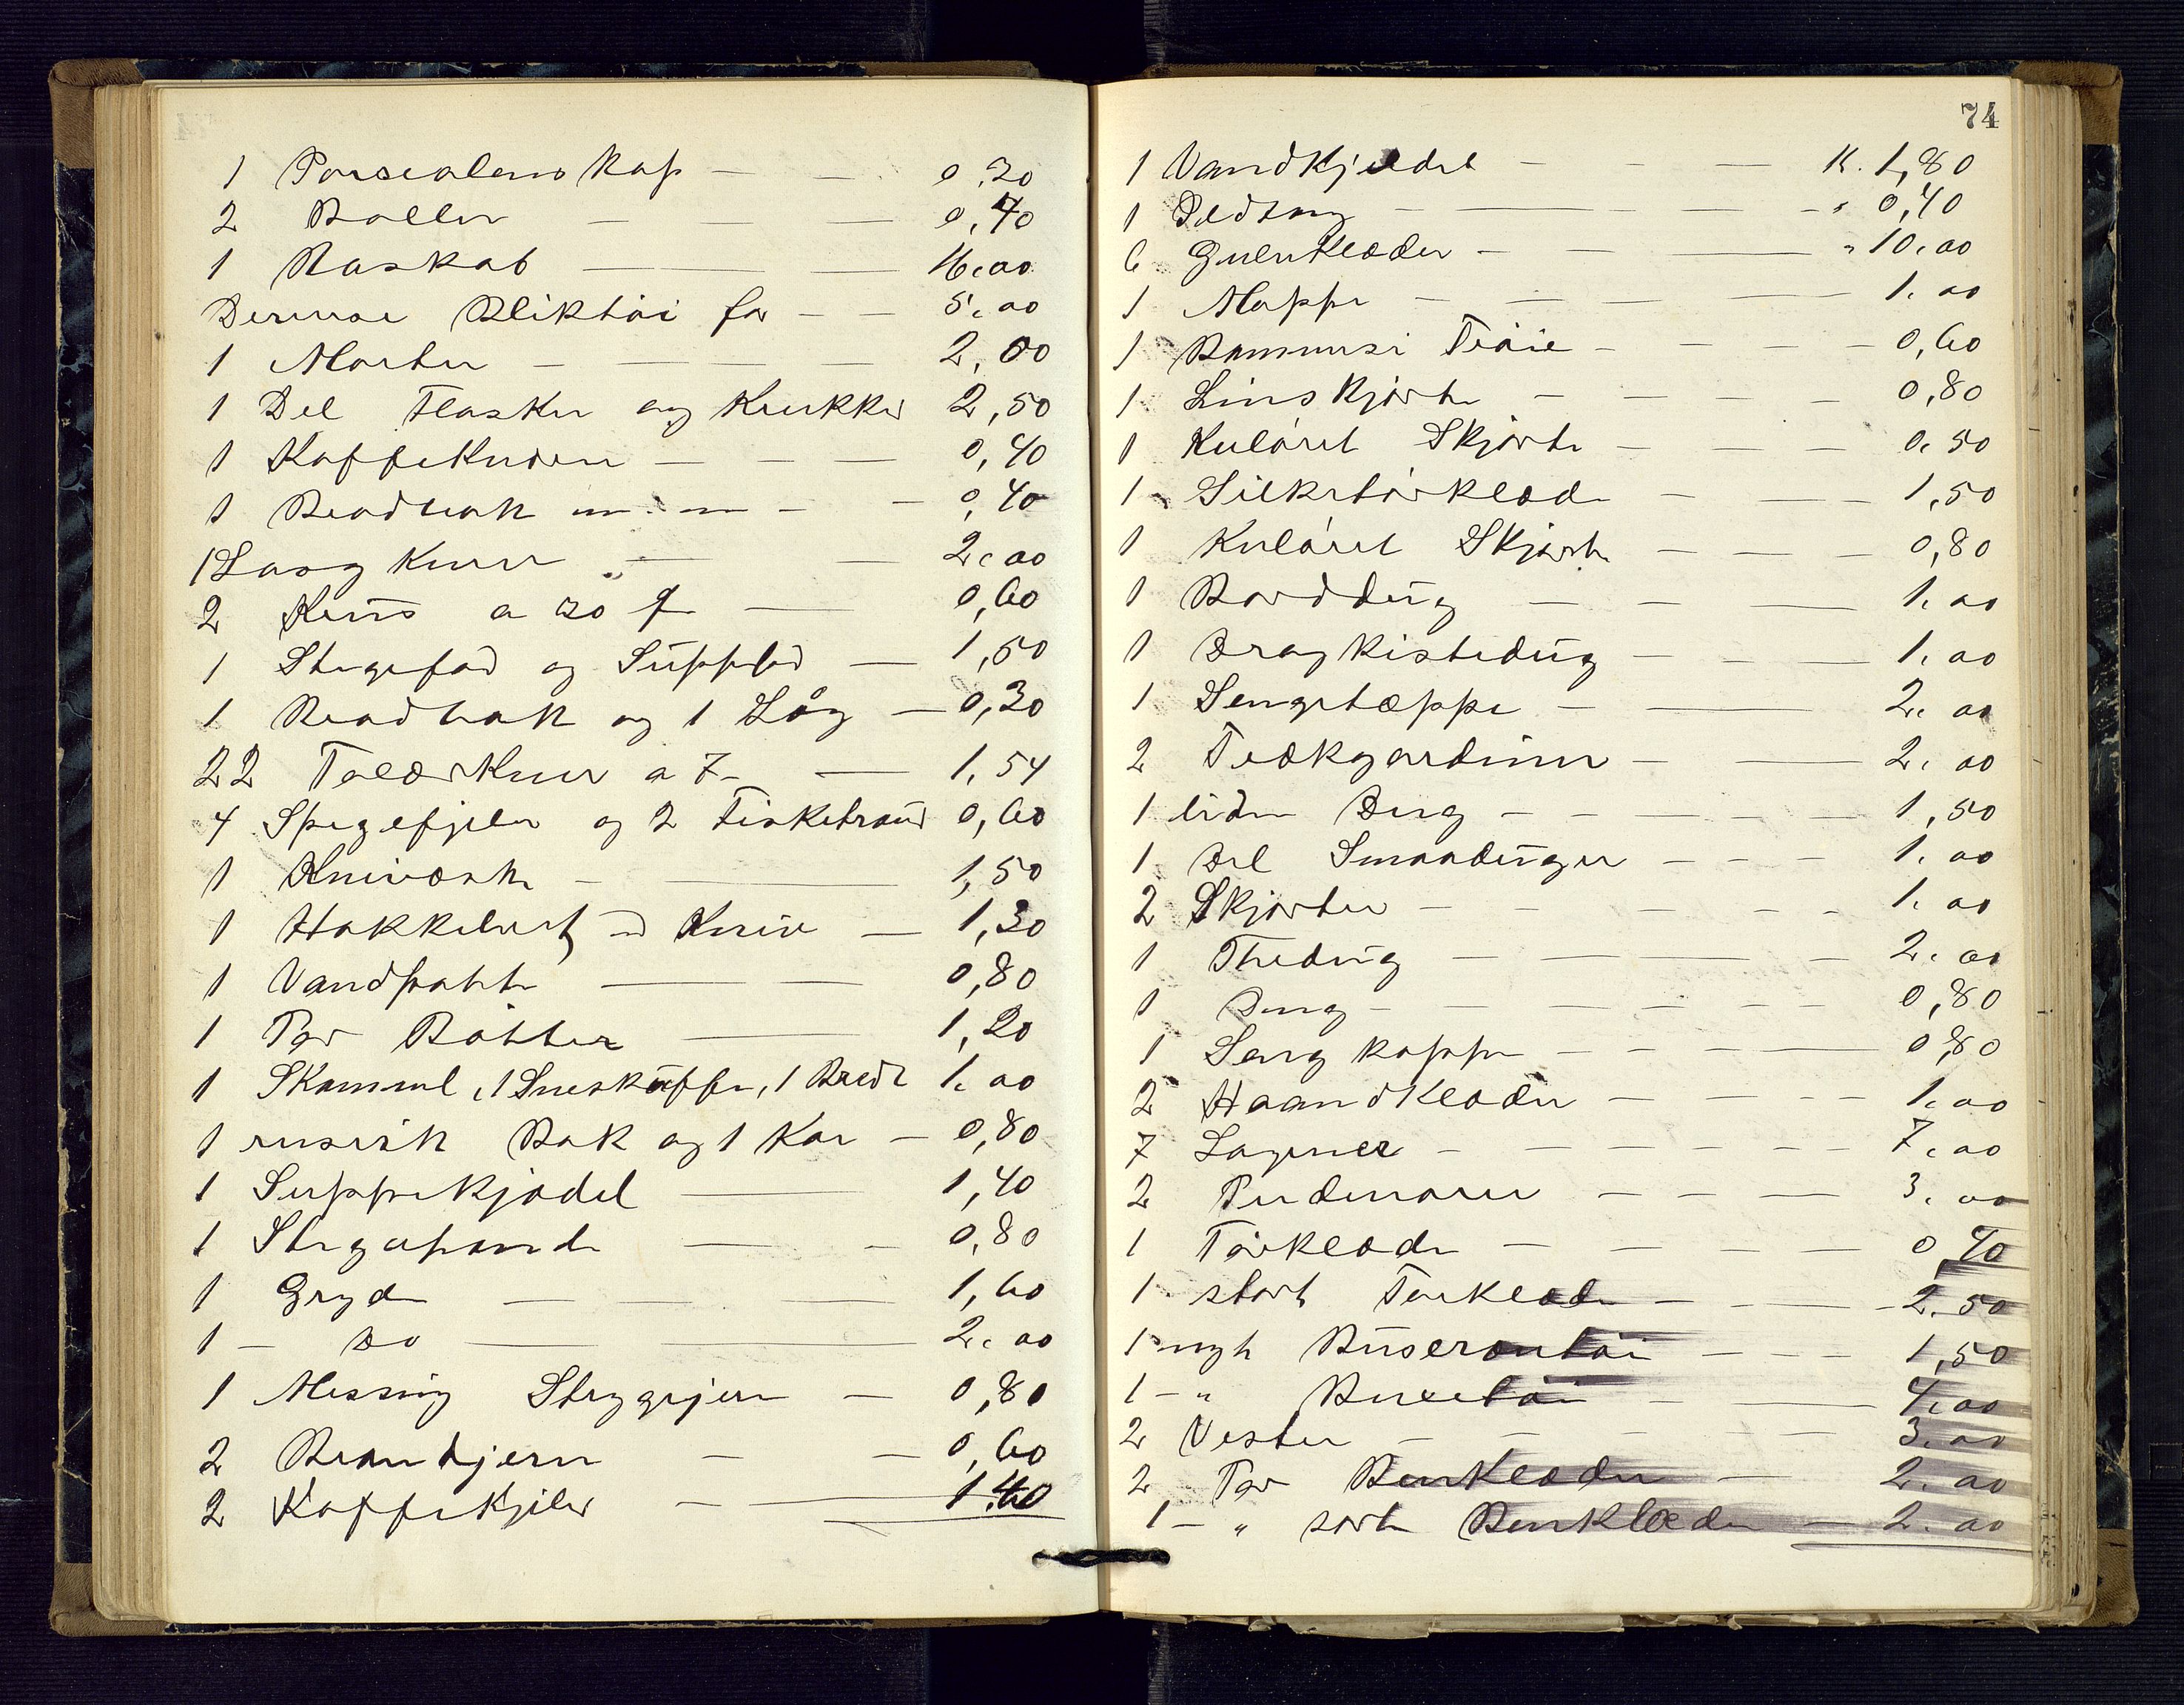 1 Porscelens Kop — — 0.20
2 Boller — — 0,40
1 Raskab — — 16.00
Deruse Bliktöi for — — 5.00
1 Morter — — — 2,00
1 Del Flasker og Krukker 2,50
1 Kaffekværn — — — 0,40
1 Brødbak m. m — — 0,40
1 Lasg Kurv — — 2.00
2 Krus a 30 ø — 0,60
1 Stegefad og Suppefad — 1,50
1 Brødbak og 1 Låg — 0,30
22 Talærkner a 7 — — 1,54
4 Spegefjeler og 2 Fisketraug 0,60
1 Knivæske — — 1,50
1 Hakkebret og Kniv — 1,30
1 Vandpotte — — 0,80
1 Par Bøtter — 1,20
1 Skammel, 1 Sneskuffe, 1 Bret 1.00
1 russisk Bak og 1 Kar — 0,80
1 Suppekjedel — 1,40
1 Stegepande — — 0,80
1 Gryde — — 1,60
1 — Do — — 2.00
1 Messing Strygejern — 0,80
2 Brandjern — — 0,60
2 Kaffekjeler — — 1.40
74
1 Vandkjedel — — — K. 1,80
1 Ildtang — — — — " 0,40
6 Gulvklæder — — — " 10.00
1 Moppe — — — 1.00
1 Bommusi Trøie — — — — 0,60
1 Linskjorte — — — — 0,80
1 Kulöret Skjorte — — — 0.50
1 Silketörklæde — — — 1,50
1 Kulöret Skjorte — — — 0,80
1 Borddug — — — 1.00
1 Dragkistedug — — — 1.00
1 Sengetæppe — — 2.00
2 Trækgardiner — — 2.00
1 liden Dug — — — — — 1,50
1 Del Smaaduger — — — 1.00
2 Skjorter — — — — — 1.00
1 Thedug — — — — 2.00
1 Dug — — — — — 0,80
1 Seng kappe — — — — 0,80
2 Haandklæder — — — — 1.00
7 Lagener — — — — — 7.00
2 Pudevarer — — — — 3.00
1 Törklæde — — — — 0,40
1 stort Törklæde — — — 2.50
1 nyt Buserontöi — — — 1,50
1 — " Buxetöi — — 4.00
2 Vester — — — — 3.00
2 Par Benklæder — — 2.00
1 — " sorte Benklæder — 2.00